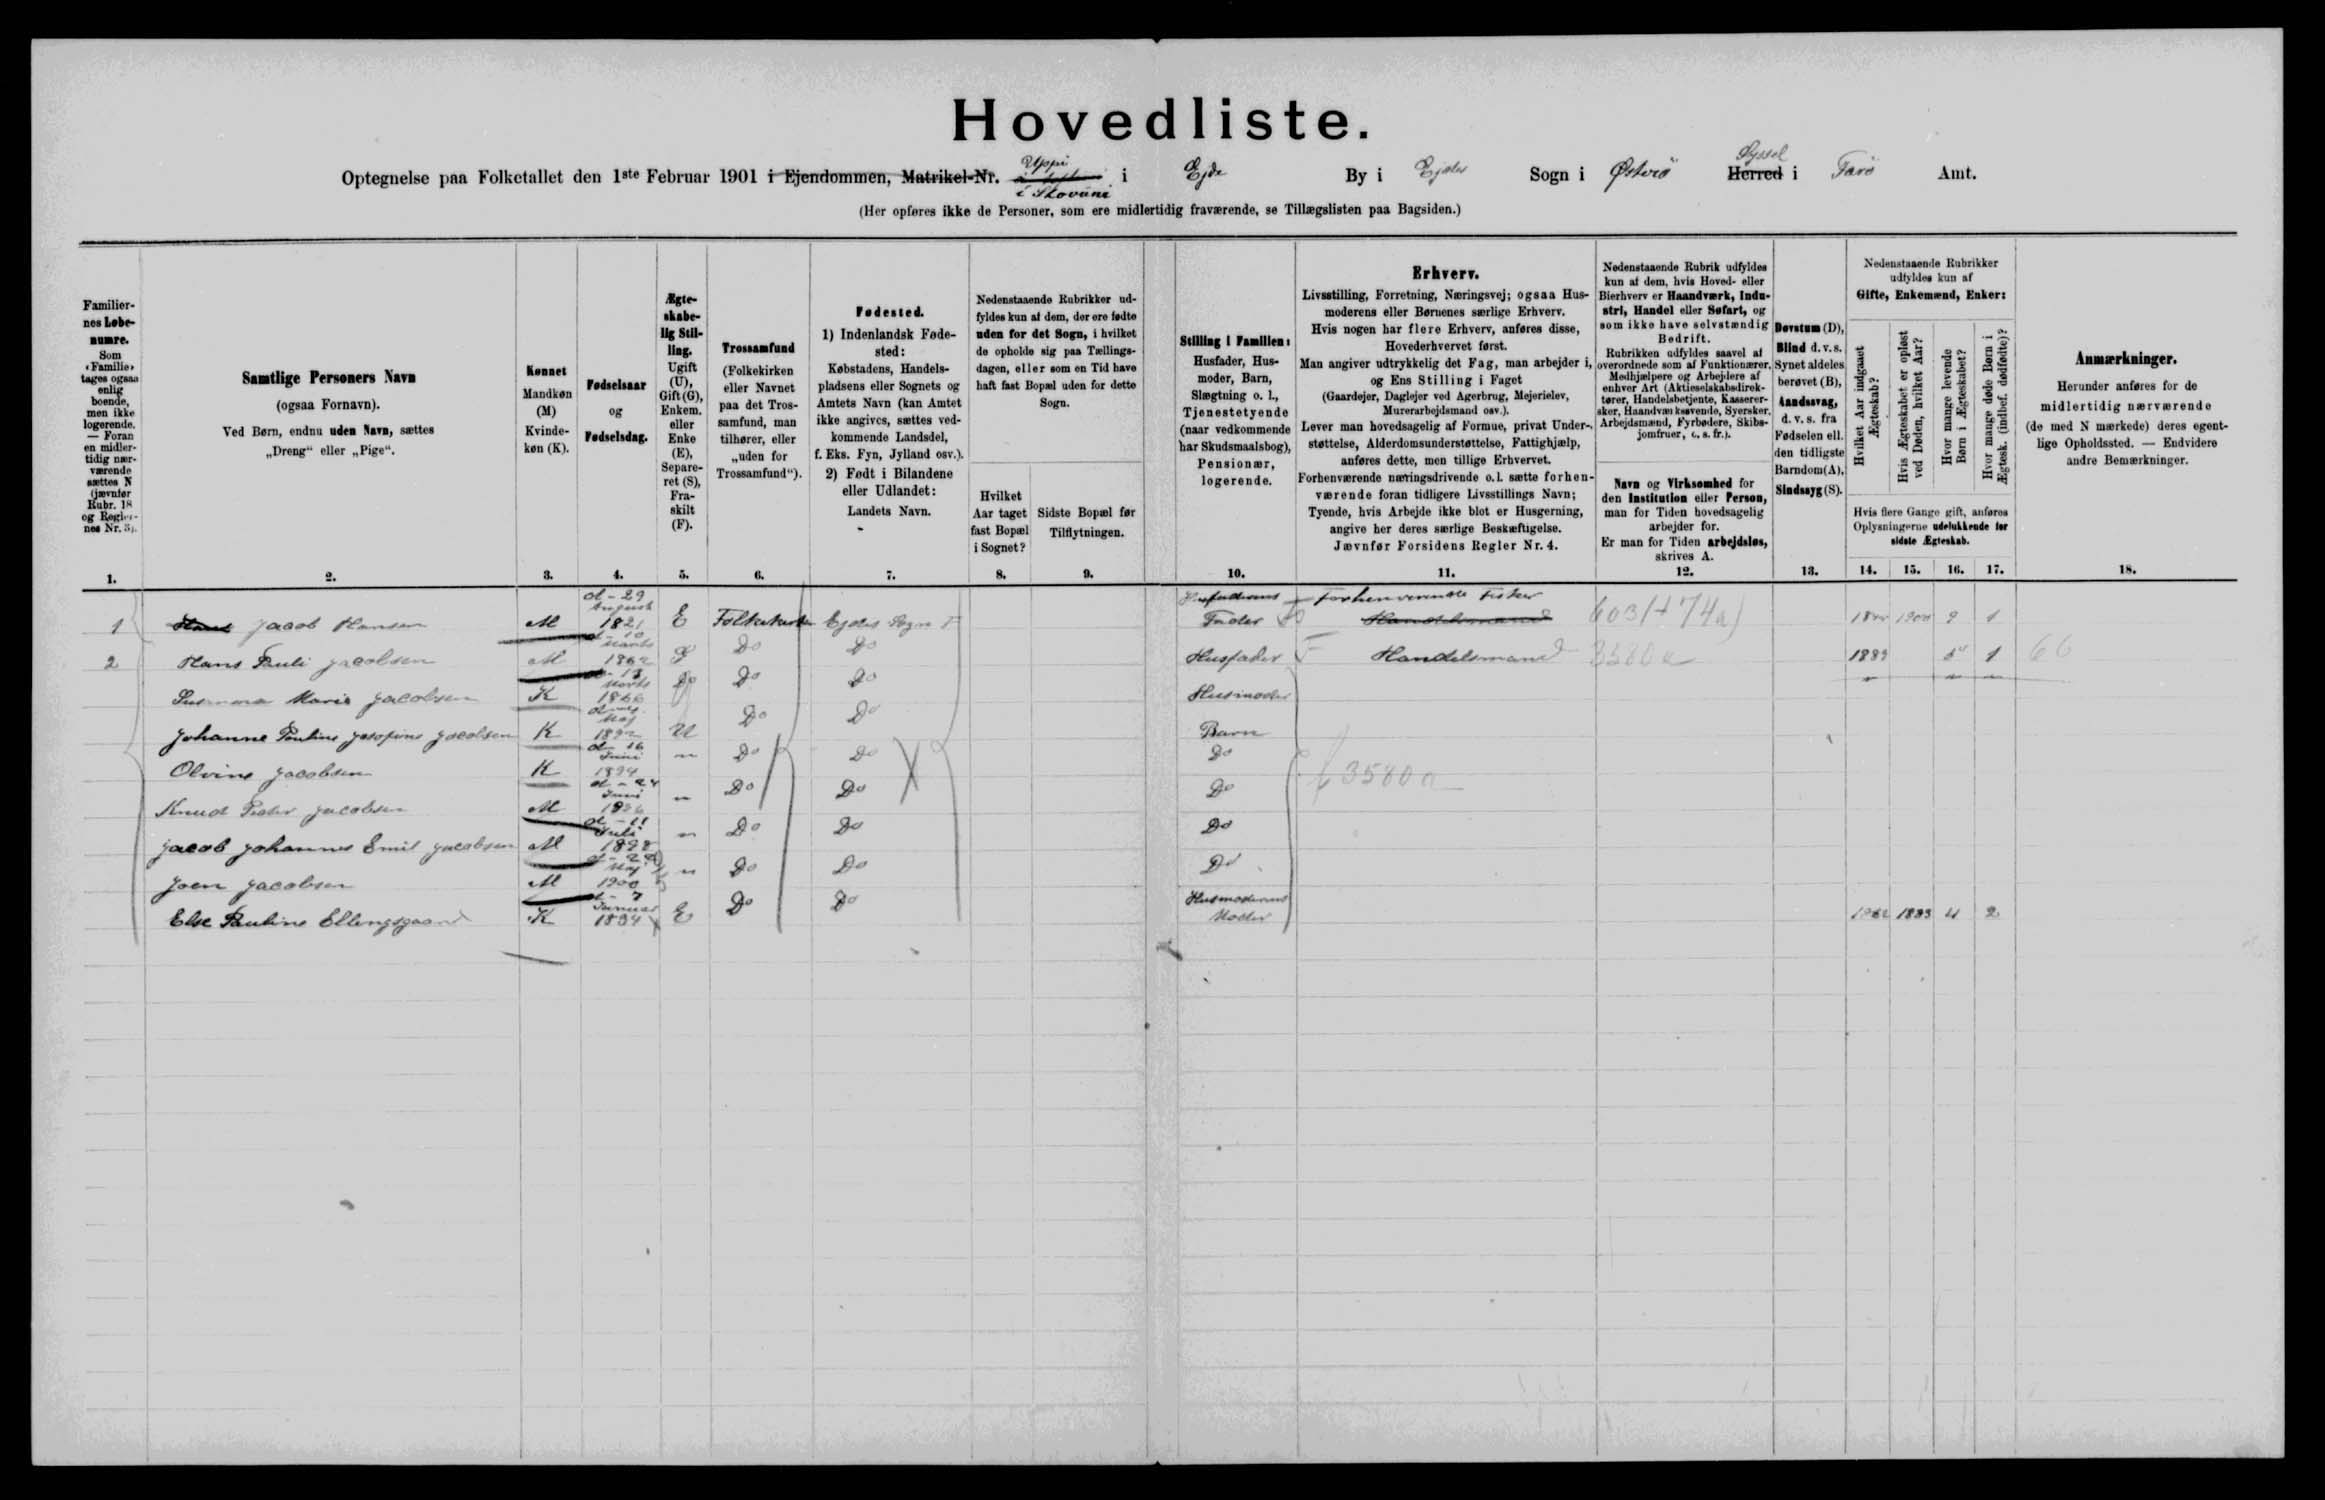 Hovedliste.
Optegnelse paa Folketallet den 1ste Februar 1901 i Ejendommen, Matrikel-Nr. Uppi i Stovuni i Ejde By i Ejdes Sogn i Østerø Syssel Herred i Færø Amt.
(Her opføres ikke de Personer, som ere midlertidig fraværende, se Tillægslisten paa Bagsiden.)
Familier-
nes Løbe-
numre.
Som
‹Familie›
tages ogsaa
enlig
boende,
men ikke
logerende.
— Foran
en midler-
tidig nær-
værende
sættes N
(jævnfør
Rubr. 18
og Regler-
nes Nr. 3).
Samtlige Personers Navn
(ogsaa Fornavn).
Ved Børn, endnu uden Navn, sættes
„Dreng“ eller „Pige“.
Kønnet
Mandkøn
(M)
Kvinde-
køn (K).
Fødselsaar
og
Fødselsdag.
Ægte-
skabe-
lig Stil-
ling.
Ugift
(U),
Gift (G),
Enkem.
eller
Enke
(E),
Separe-
ret (S),
Fra-
skilt
(F).
Trossamfund
(Folkekirken
eller Navnet
paa det Tros-
samfund, man
tilhører, eller
„uden for
Trossamfund“).
Fødested.
1) Indenlandsk Føde-
sted:
Købstadens, Handels-
pladsens eller Sognets og
Amtets Navn (kan Amtet
ikke angives, sættes ved-
kommende Landsdel,
f. Eks. Fyn, Jylland osv.).
2) Født i Bilandene
eller Udlandet:
Landets Navn.
Nedenstaaende Rubrikker ud-
fyldes kun af dem, der ere fødte
uden for det Sogn, i hvilket
de opholde sig paa Tællings-
dagen, eller som en Tid have
haft fast Bopæl uden for dette
Sogn.
Hvilket
Aar taget
fast Bopæl
i Sognet?
Sidste Bopæl før
Tilflytningen.
Stilling i Familien:
Husfader, Hus-
moder, Barn,
Slægtning o. l.,
Tjenestetyende
(naar vedkommende
har Skudsmaalsbog),
Pensionær,
logerende.
Erhverv.
Livsstilling, Forretning, Næringsvej; ogsaa Hus-
moderens eller Børnenes særlige Erhverv.
Hvis nogen har flere Erhverv, anføres disse,
Hovederhvervet først.
Man angiver udtrykkelig det Fag, man arbejder i,
og Ens Stilling i Faget
(Gaardejer, Daglejer ved Agerbrug, Mejerielev,
Murerarbejdsmand osv.).
Lever man hovedsagelig af Formue, privat Under-
støttelse, Alderdomsunderstøttelse, Fattighjælp,
anføres dette, men tillige Erhvervet.
Forhenværende næringsdrivende o. l. sætte forhen-
værende foran tidligere Livsstillings Navn;
Tyende, hvis Arbejde ikke blot er Husgerning,
angive her deres særlige Beskæftigelse.
Jævnfør Forsidens Regler Nr. 4.
Nedenstaaende Rubrik udfyldes
kun af dem, hvis Hoved- eller
Bierhverv er Haandværk, Indu-
stri, Handel eller Søfart, og
som ikke have selvstændig
Bedrift.
Rubrikken udfyldes saavel af
overordnede som af Funktionærer,
Medhjælpere og Arbejdere af
enhver Art (Aktieselskabsdirek-
tører, Handelsbetjente, Kasserer-
sker, Haandværkssvende, Syersker,
Arbejdsmænd, Fyrbødere, Skibs-
jomfruer, o. s. fr.).
Navn og Virksomhed for
den Institution eller Person,
man for Tiden hovedsagelig
arbejder for.
Er man for Tiden arbejdsløs,
skrives A.
Døvstum (D),
Blind d. v. s.
Synet aldeles
berøvet (B),
Aandssvag,
d. v. s. fra
Fødselen ell.
den tidligste
Barndom (A),
Sindssyg (S).
Nedenstaaende Rubrikker
udfyldes kun af
Gifte, Enkemænd, Enker:
Hvilket Aar indgaaet
Ægteskab?
Hvis Ægteskabet er opløst
ved Døden, hvilket Aar?
Hvor mange levende
Børn i Ægteskabet?
Hvor mange døde Børn i
Ægtesk. (indbef. dødfødte)?
Hvis flere Gange gift, anføres
Oplysningerne udelukkende for
sidste Ægteskab.
Anmærkninger.
Herunder anføres for de
midlertidig nærværende
(de med N mærkede) deres egent-
lige Opholdssted. — Endvidere
andre Bemærkninger.
1. 2. 3. 4. 5. 6. 7. 8. 9. 10. 11. 12. 13. 14. 15. 16. 17. 18.
1 Hans Jacob Hansen M d - 29 August 1821 E Folkekirken Ejdes Sogn F Husfaderens Fader Forhenværende Fisker Handelsmand 1900 9 1
2 Hans Pauli Jacobsen M Marts 1862 G Do Do Husfader F Handelsmand 3580a 1889 1 66
Susanna Maria Jacobsen K d - 13 Marts 1866 Do Do Do Husmoder
Johanne Pauline Josefine Jacobsen K Maj 1892 U Do Do Barn
Olvine Jacobsen K d - 16 Juni 1894 " Do Do Do
Knud Peder Jacobsen M d - 24 Juni 1896 " Do Do Do 3580a
Jacob Johannes Emil Jacobsen M d - 11 Juli 1898 " Do Do Do
Joen Jacobsen M Maj 1900 " Do Do Do
Else Pauline Ellingsgaard K d - 7 Januar 1834 E Do Do Husmoderens Moder 1862 1883 4 2